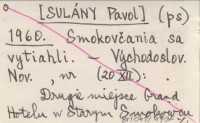 [SULÁNY Pavol] (ps)
1960. Smokovčania sa
vytiahli. - Východoslov.
Nov., nr (20 XII):
Drugie miejsce Grand
Hotelu w Starym Smokowcu